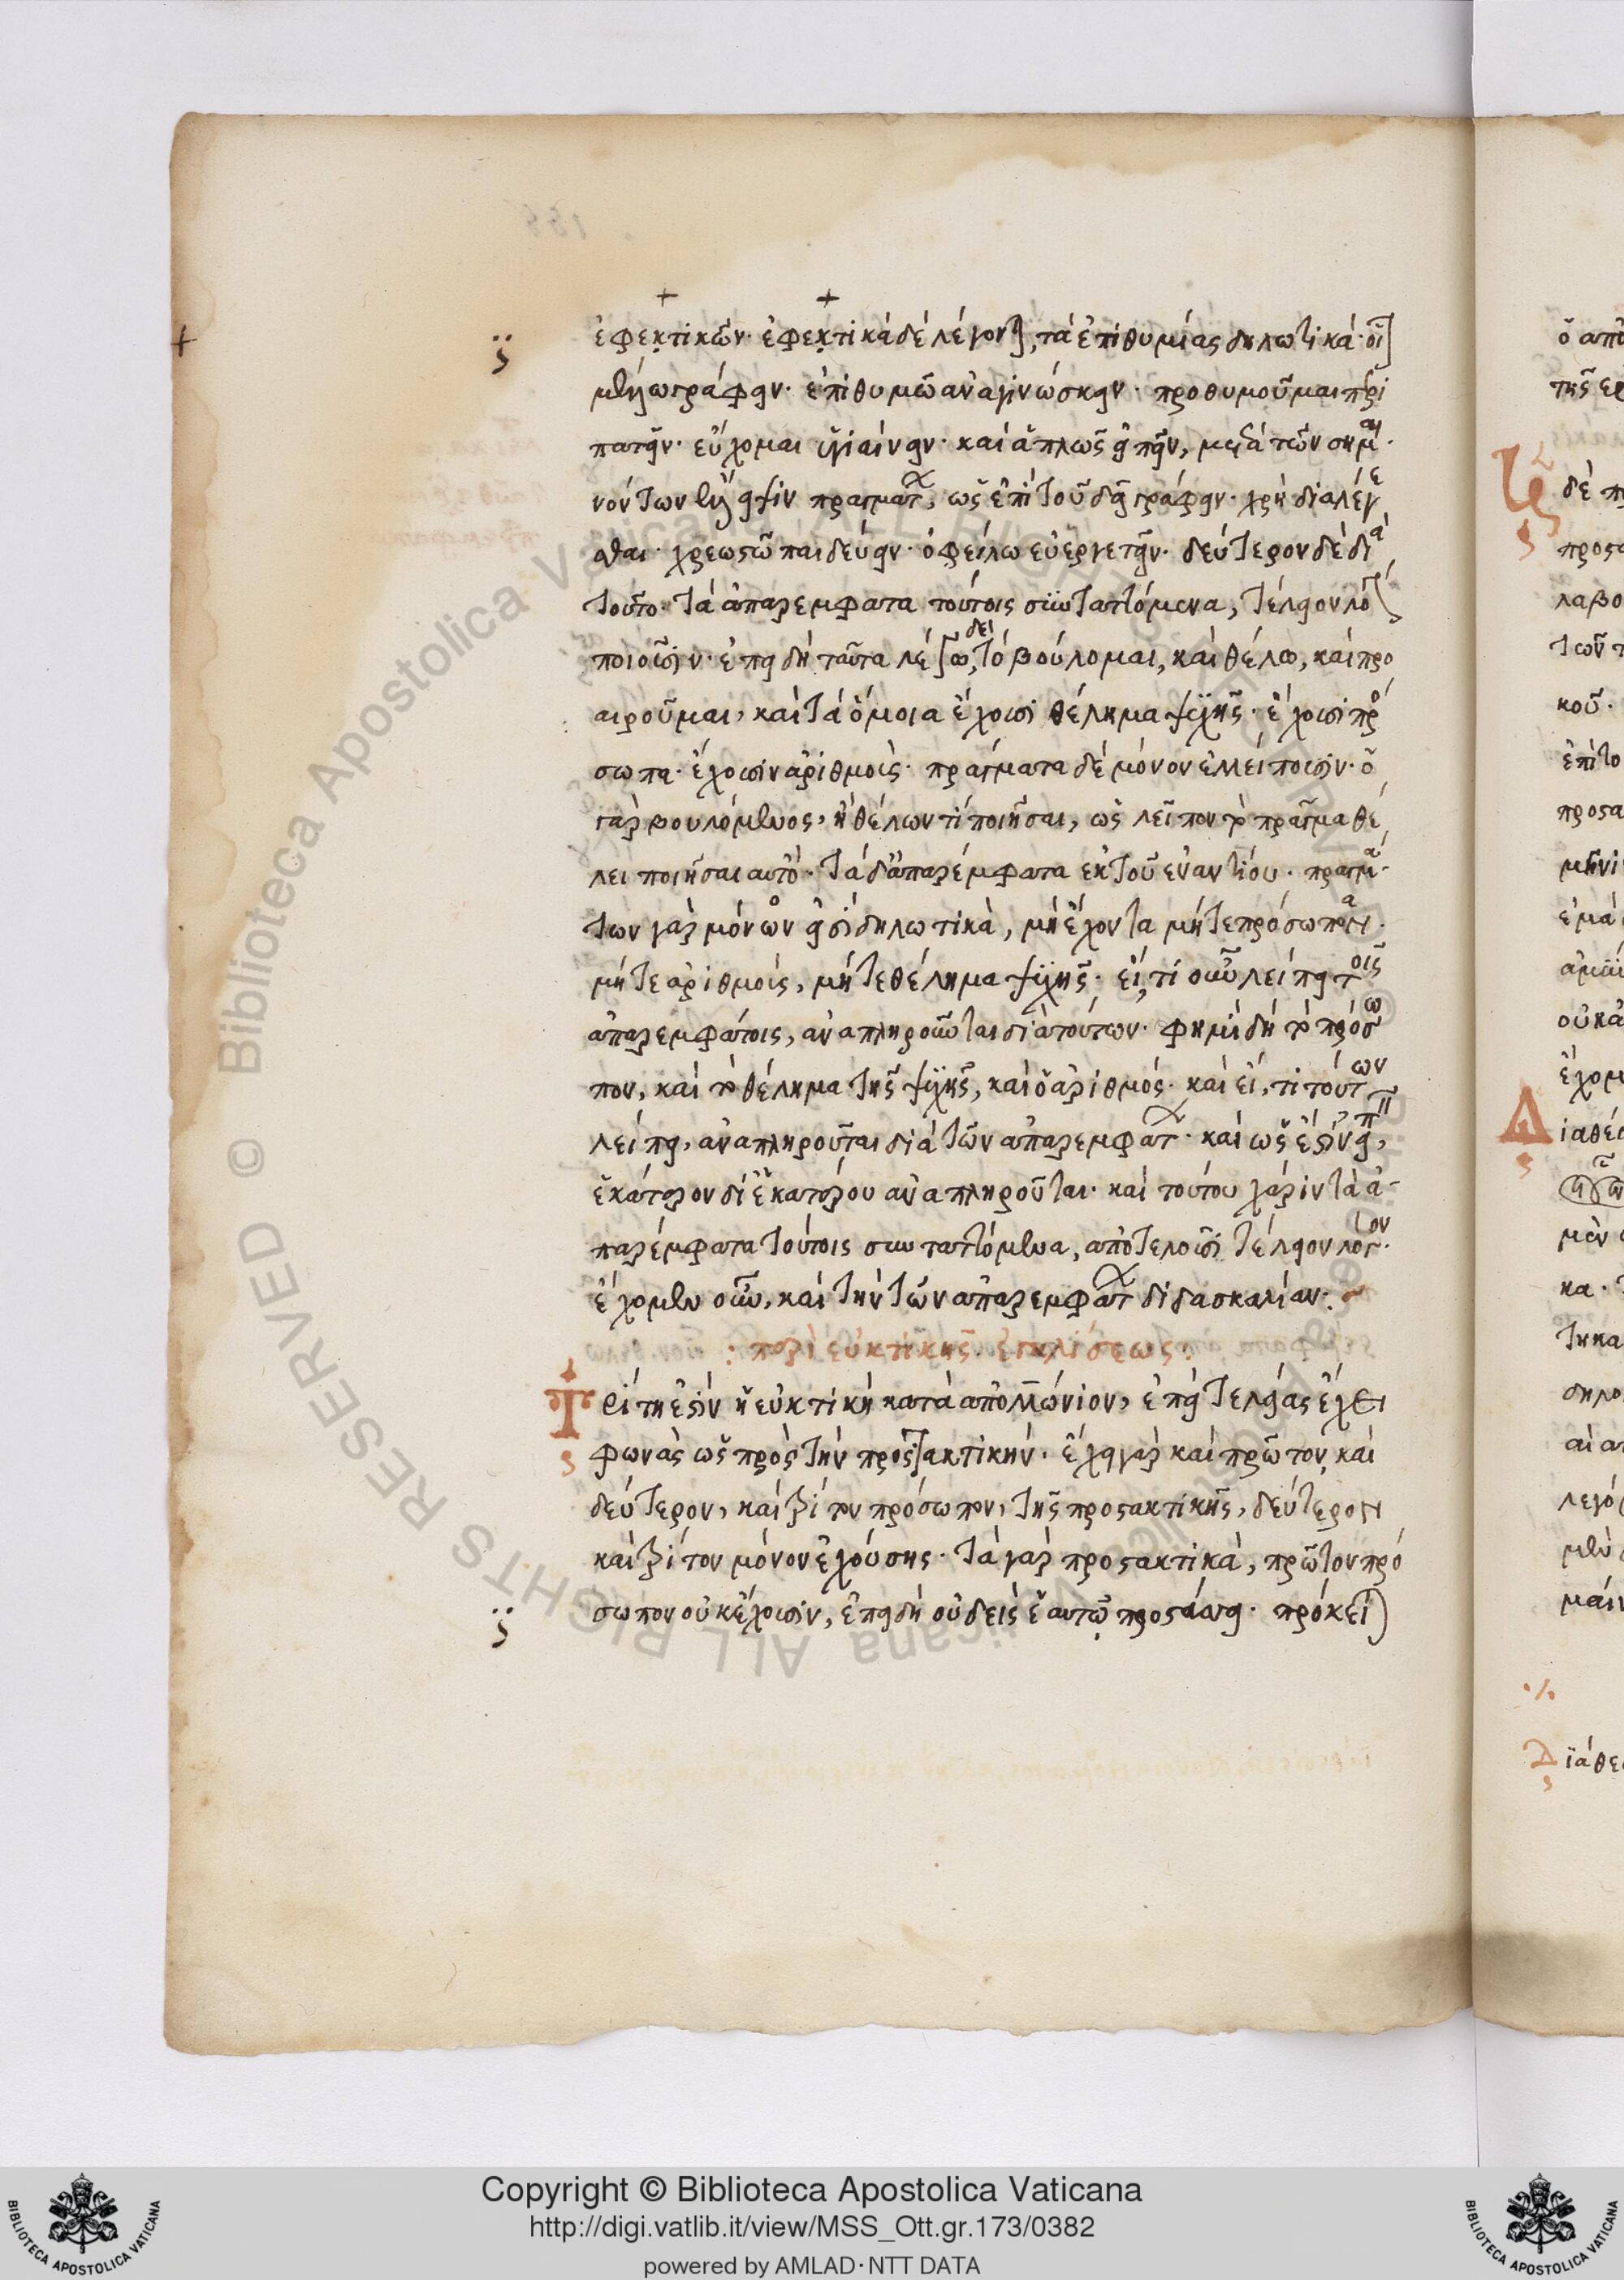 ἐφεκτικῶν· ἐφεκτικὰ δὲ λέγονται, τὰ ἐπιθυμίας δηλωτικά· οἷ
μαι γράφειν· ἐπιθυμῶ ἀναγινώσκειν· προθυμοῦμαι περι
πατεῖν· εὔχομαι ὑγιαίνειν· καὶ ἁπλῶς εἰπεῖν, μετὰ τῶν σημαι
νόντων ἔλλειψιν πραγμάτων, ὡς ἐπὶ τοῦ δεῖ γράφειν· χρὴ διαλέγε
σθαι· χρεωστῶ παιδεύειν· ὀφείλω εὐεργετεῖν· δεύτερον δὲ διὰ
τοῦτο τὰ ἀπαρέμφατα τούτοις συνταττόμενα, τέλειον λόγον
ποιοῦσιν· ἐπειδὴ ταῦτα λέγω δεῖ, τὸ βούλομαι, καὶ θέλω, καὶ προ
αιροῦμαι, καὶ τὰ ὅμοια ἔχουσι θέλημα ψυχῆς· ἔχουσι πρό
σωπα· ἔχουσιν ἀριθμοὺς· πράγματα δὲ μόνον ἐλλείπουσιν· ὁ
γὰρ βουλόμενος, ἢ θέλων τί ποιῆσαι, ὡς λεῖπον τὸ πρᾶγμα θέ
λει ποιῆσαι αὐτό· τὰ δ' ἀπαρέμφατα ἐκ τοῦ ἐναντίου· πραγμά
των γὰρ μόνων εἰσὶ δηλωτικὰ, μὴ ἔχοντα μήτε πρόσωπα·
μήτε ἀριθμοὺς, μήτε θέλημα ψυχῆς· εἴ, τί οὖν λείπει τοῖς
ἀπαρεμφάτοις, ἀναπληροῦνται διὰ τούτων· φημὶ δὴ τὸ πρόσω
πον, καὶ τὸ θέλημα τῆς ψυχῆς, καὶ ὁ ἀριθμός· καὶ εἴ, τι τούτων
λείπει, ἀναπληροῦται διὰ τῶν ἀπαρεμφάτων· καὶ ὡς ἔστιν εἰπεῖν,
ἑκάτερον δι' ἑκατέρου ἀναπληροῦται· καὶ τούτου χάριν τὰ ἀ-
παρέμφατα τούτοις συνταττόμενα, ἀποτελοῦσι τέλειον λόγον·
ἔχομεν οὖν, καὶ τὴν τῶν ἀπαρεμφάτων διδασκαλίαν:
: περὶ εὐκτικῆς ἐγκλίσεως:
Τρίτη ἐστὶν ἡ εὐκτικὴ κατὰ ἀπολλώνιον, ἐπεὶ τελείας ἔχει
φωνὰς ὡς πρὸς τὴν προστακτικήν· ἔχει γὰρ καὶ πρῶτον, καὶ
δεύτερον, καὶ τρίτον πρόσωπον, τῆς προστακτικῆς, δεύτερον
καὶ τρίτον μόνον ἐχούσης· τὰ γὰρ προστακτικὰ, πρῶτον πρό
σωπον οὐκ ἔχουσιν, ἐπειδὴ οὐδεὶς ἑαυτῷ προστάσσει· πρόκειται
Copyright © Biblioteca Apostolica Vaticana
http://digi.vatlib.it/view/MSS_Ott.gr.173/0382
powered by AMLAD·NTT DATA